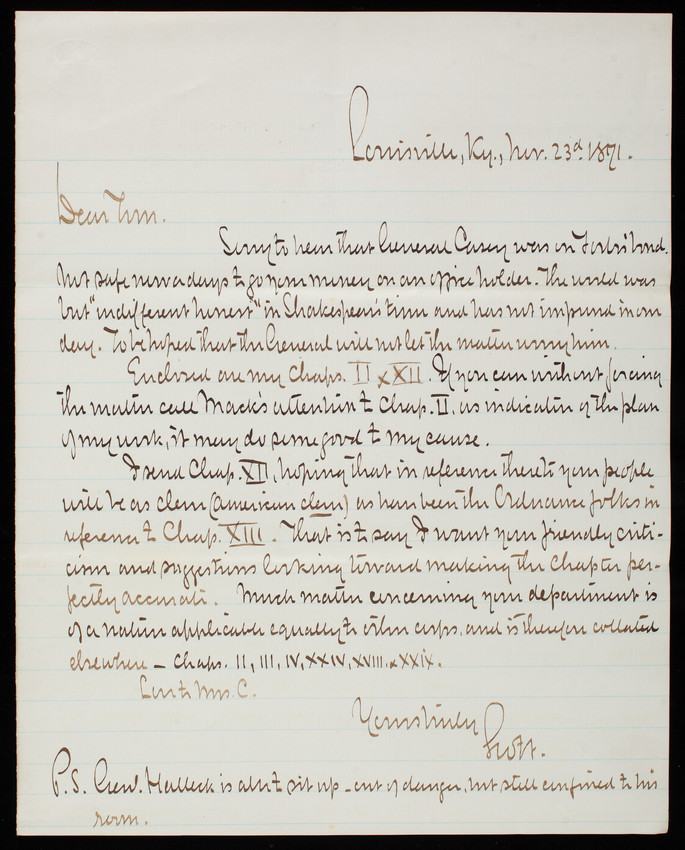 Louisville, Ky., Nov. 23d. 1871.
Dear Tom.
Sorry to hear that General Casey was on bond.
Not safe nowadays to go your money on an office holder. The world was
but "indifferent honest" in Shakespear's time and has not impund in our
day. To be hoped that the General will not let the matter worry him.
Enclosed are my Chaps. II & XII. If you can without forcing
the matter call Mack's attention to Chap. II, as indicative of the plan
of my work, it may do some good to my cause.
I send Chap. XII, hoping that in reference thereto your people
will be as clem (American clem) as have been the Ordnance folks in
reference to Chap. XIII. That is to say I want your friendly criti-
cism and suggestions looking toward making the Chapter per-
fectly accurate. Much matter concerning your department is
of a nature applicable equally to other corps, and is therefore collated
elsewhere – Chaps. II, III, IV, XXIV, XVIII. & XXIX.
Love to Mrs. C.
Yours truly
Scott.
P.S. Genl. Halleck is able to sit up – out of danger, but still confined to his
room.